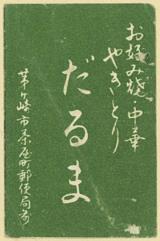 お好み焼・中華
やきとり
だるま
茅ヶ崎市茶屋町郵便局前